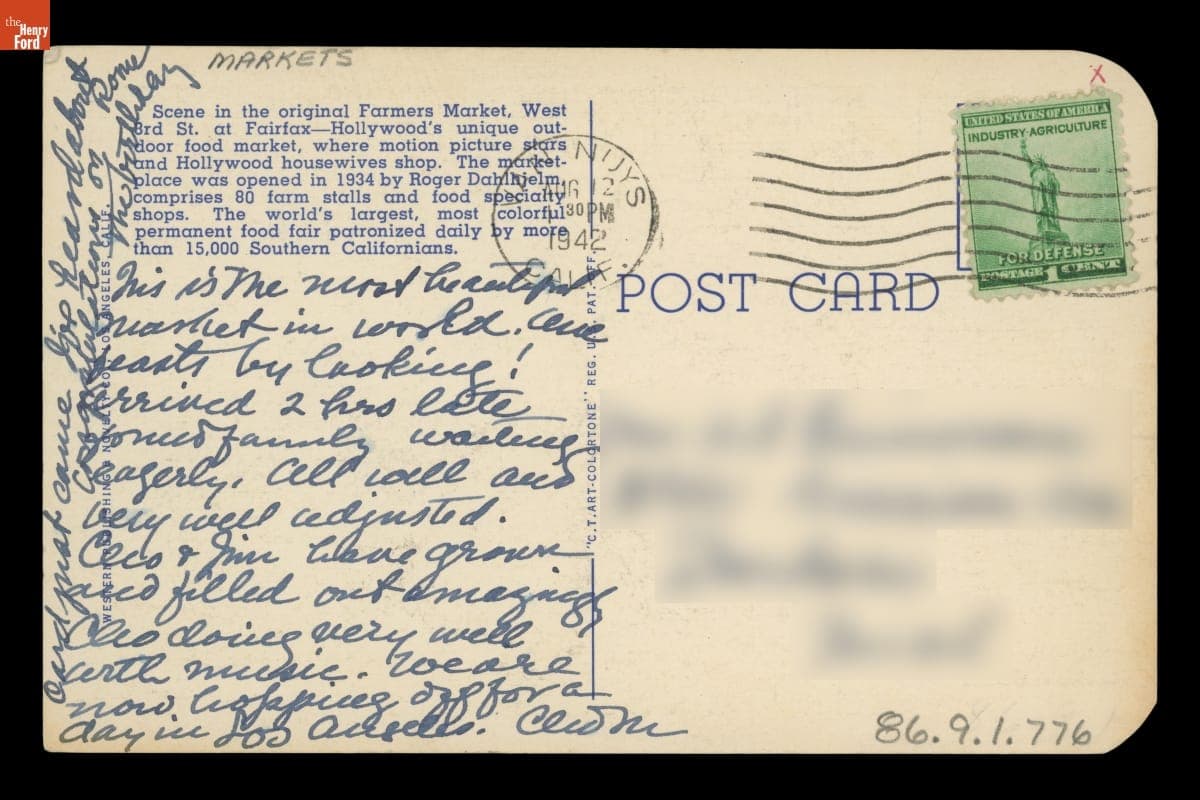 the
Henry
Ford
MARKETS
Scene in the original Farmers Market, West
3rd St. at Fairfax—Hollywood's unique out-
door food market, where motion picture stars
and Hollywood housewives shop. The market-
place was opened in 1934 by Roger Dahlhjelm,
comprises 80 farm stalls and food specialty
shops. The world's largest, most colorful
permanent food fair patronized daily by more
than 15,000 Southern Californians.
This is the most beautiful
market in world. One
feasts by looking!
Arrived 2 hrs late
found family waiting
eagerly. All well and
very well adjusted.
Cleo & Jim have grown
and filled out amazingly
Cleo doing very well
with music. We are
now hopping off for a
day in Los Angeles.
Card just came
Congratulations on
the birthday
WESTERN PUBLISHING & NOVELTY CO., LOS ANGELES, CALIF.
"C.T. ART-COLORTONE" REG. U.S. PAT. OFF.
VAN NUYS
AUG 12
30 PM
1942
CALIF.
POST CARD
X
UNITED STATES OF AMERICA
INDUSTRY·AGRICULTURE
FOR DEFENSE
POSTAGE 1 CENT
86.9.1.776